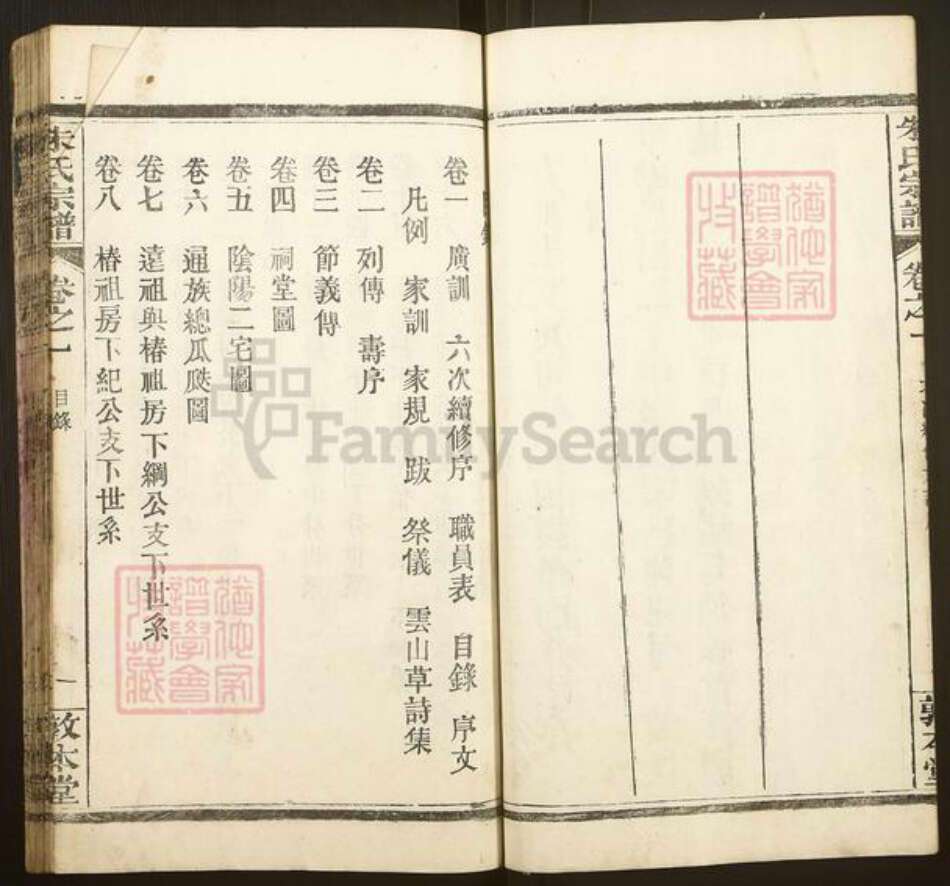 朱氏宗譜
卷之一
敦本堂
卷一 廣訓 六次續修序 職員表 目錄 序文
凡例 家訓 家規 跋 祭儀 雲山草詩集
卷二 列傳 壽序
卷三 節義傳
卷四 祠堂圖
卷五 陰陽二宅圖
卷六 通族總瓜瓞圖
卷七 遠祖與椿祖房下綱公支下世系
卷八 椿祖房下紀公支下世系
朱氏宗譜
卷之一
目錄
一
敦本堂
FamilySearch